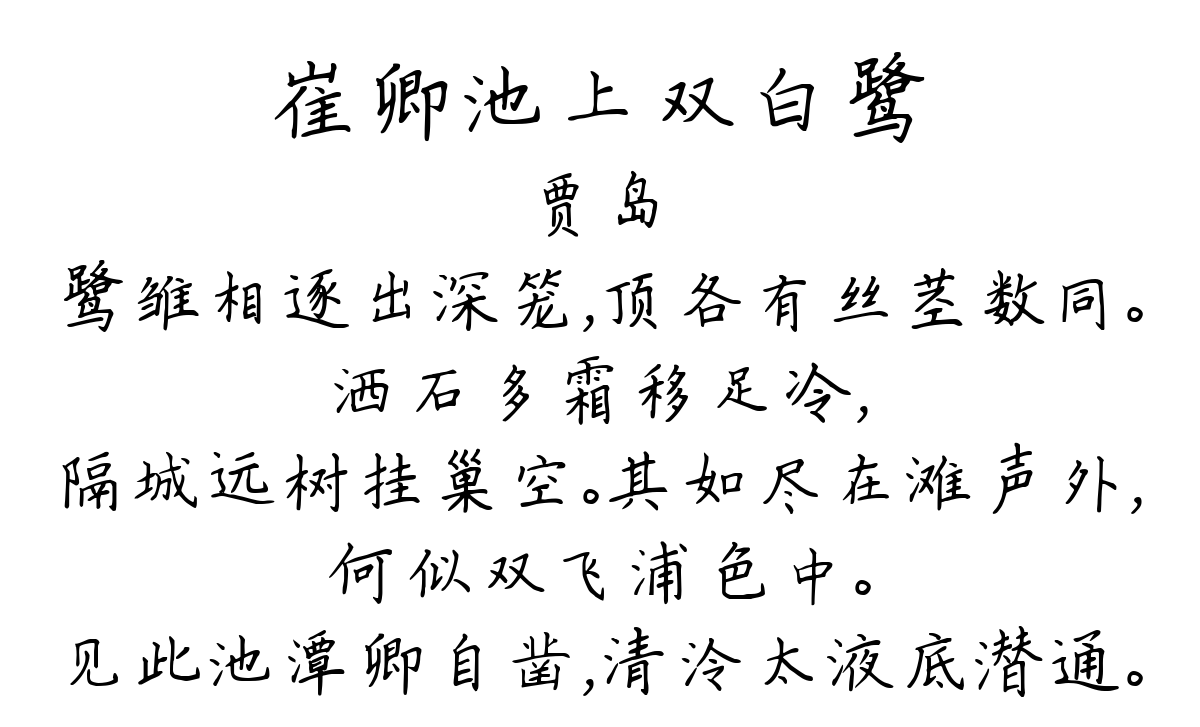 崔卿池上双白鹭
贾岛
鹭雏相逐出深笼,顶各有丝茎数同。
洒石多霜移足冷,
隔城远树挂巢空。其如尽在滩声外,
何似双飞浦色中。
见此池潭卿自凿,清泠太液底潜通。